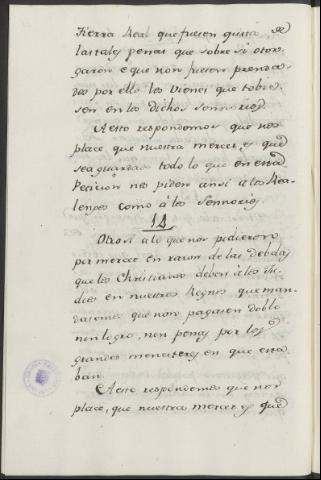 tierra Real que fuesen quita de
las tales penas que sobre si otor-
garon e que non fuesen prenda-
dos por ello los vienes que tobie-
sen en los dichos sennorios
A esto respondemos que nos
place que nuestra merced es que
sea guardado todo lo que en esta
Peticion nos piden ansi a los Rea-
lengos como a los Sennorios
14
Otrosi a lo que nos pidieron
por merced en razon de las debdas
que los Christianos deben a los Ju-
dios en nuestros Regnos que man-
dasemos que non pagasen doblo
nin logro, nin penas por los
grandes menesteres en que esta-
ban.
A esto respondemos que nos
place, que nuestra merced es que